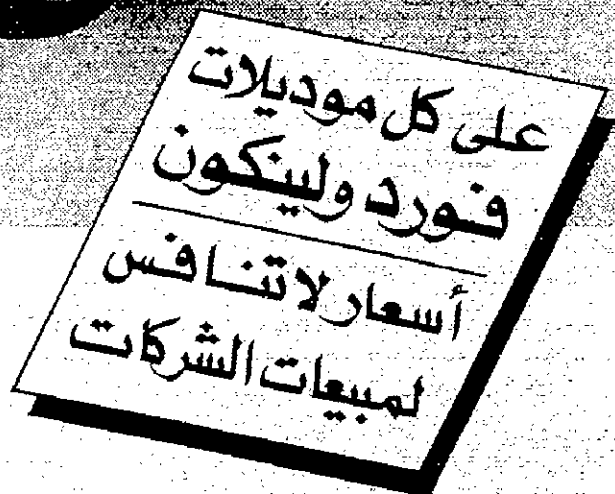 على كل موديلات
فورد ولينكون
أسعار لا تنافس
لمبيعات الشركات